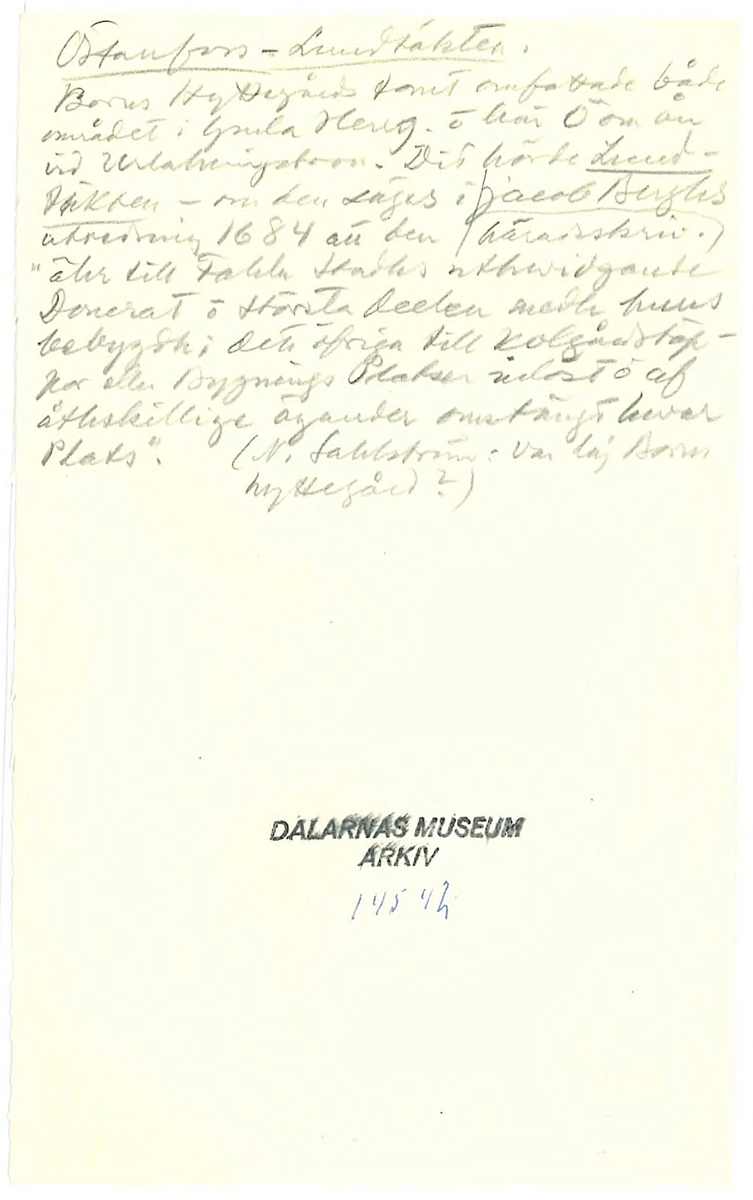 Östanfors – Lundtäkten.
Borns Hyttegårds tomt omfattade både
området i Gamla Herrg. o här Ö om ån
vid Urlakningsboon. Dit hörde Lund-
täkten – om den säges i Jacob Berghs
utredning 1684 att den (häradsskriv.)
"ähr till Fahlu Stadhs uthwidgande
Donerat o största deelen medh huus
bebygdh; dett öfriga till Kolgårdstäp-
por eller Bygnings Platser inlöst o af
åthskillige ägander omstängt hwar
Plats". (N. Sahlström: Var låg Borns
hyttegård?)
DALARNAS MUSEUM
ARKIV
145 42